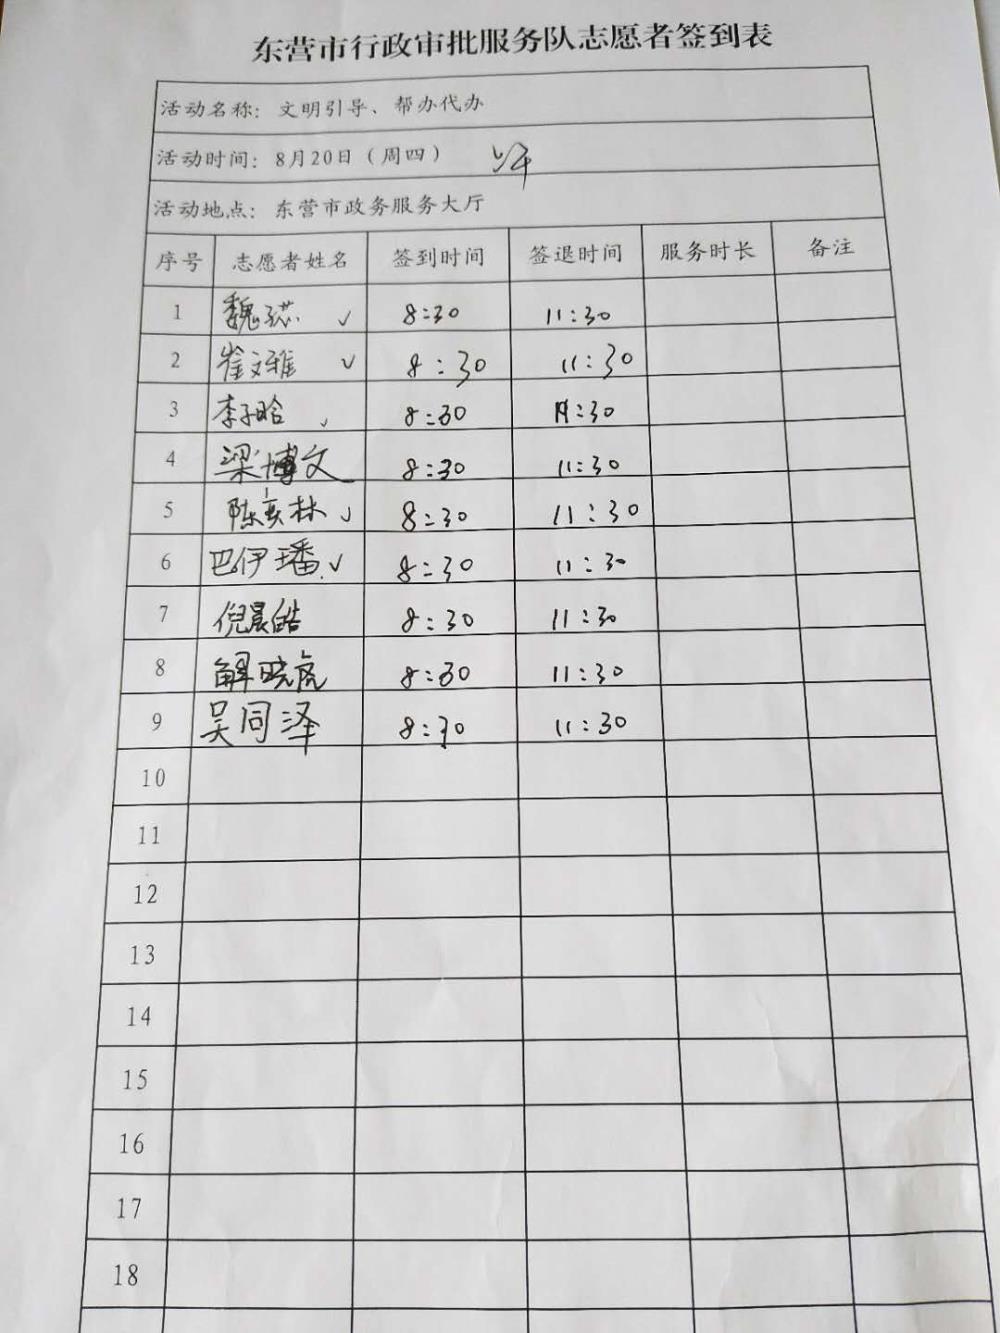 东营市行政审批服务队志愿者签到表
活动名称：文明引导、帮办代办
活动时间：8月20日（周四） 上午
活动地点：东营市政务服务大厅
序号 志愿者姓名 签到时间 签退时间 服务时长 备注
1 魏 ✓ 8:30 11:30
2 崔文雅 ✓ 8:30 11:30
3 李子晗 ✓ 8:30 11:30
4 梁博文 8:30 11:30
5 陈奕林 ✓ 8:30 11:30
6 巴伊璠 ✓ 8:30 11:30
7 倪晨皓 8:30 11:30
8 解晓虎 8:30 11:30
9 吴同泽 8:30 11:30
10
11
12
13
14
15
16
17
18